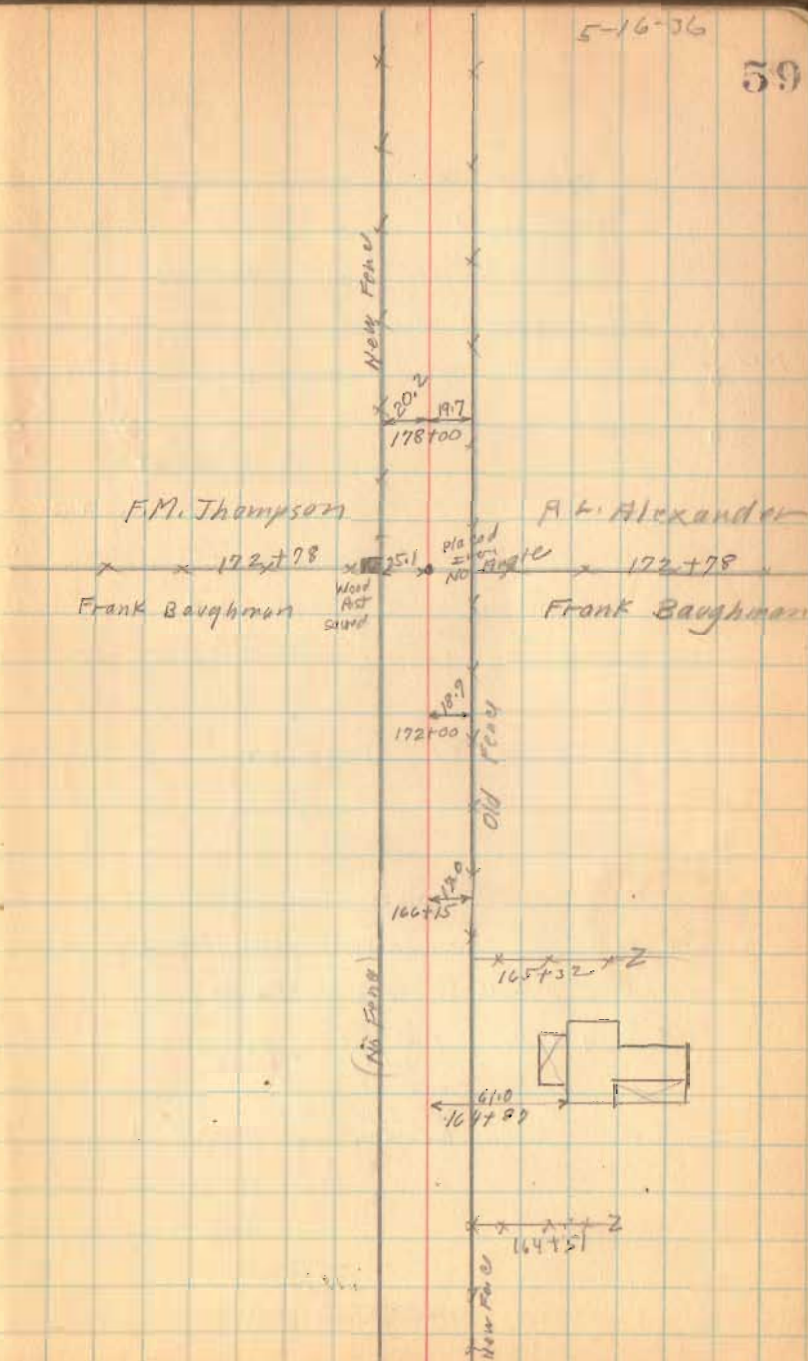 5-16-36
59
New Fence
20.2
19.7
178+00
F.M. Thompson
A L. Alexander
172+78
25.1
Placed
Iron
No Angle
172+78
Wood
Post
Frank Baughman
Frank Baughman
18.9
172+00
Old Fence
166+15
165+32
(No Fence)
61.0
164+89
164+51
New Fence